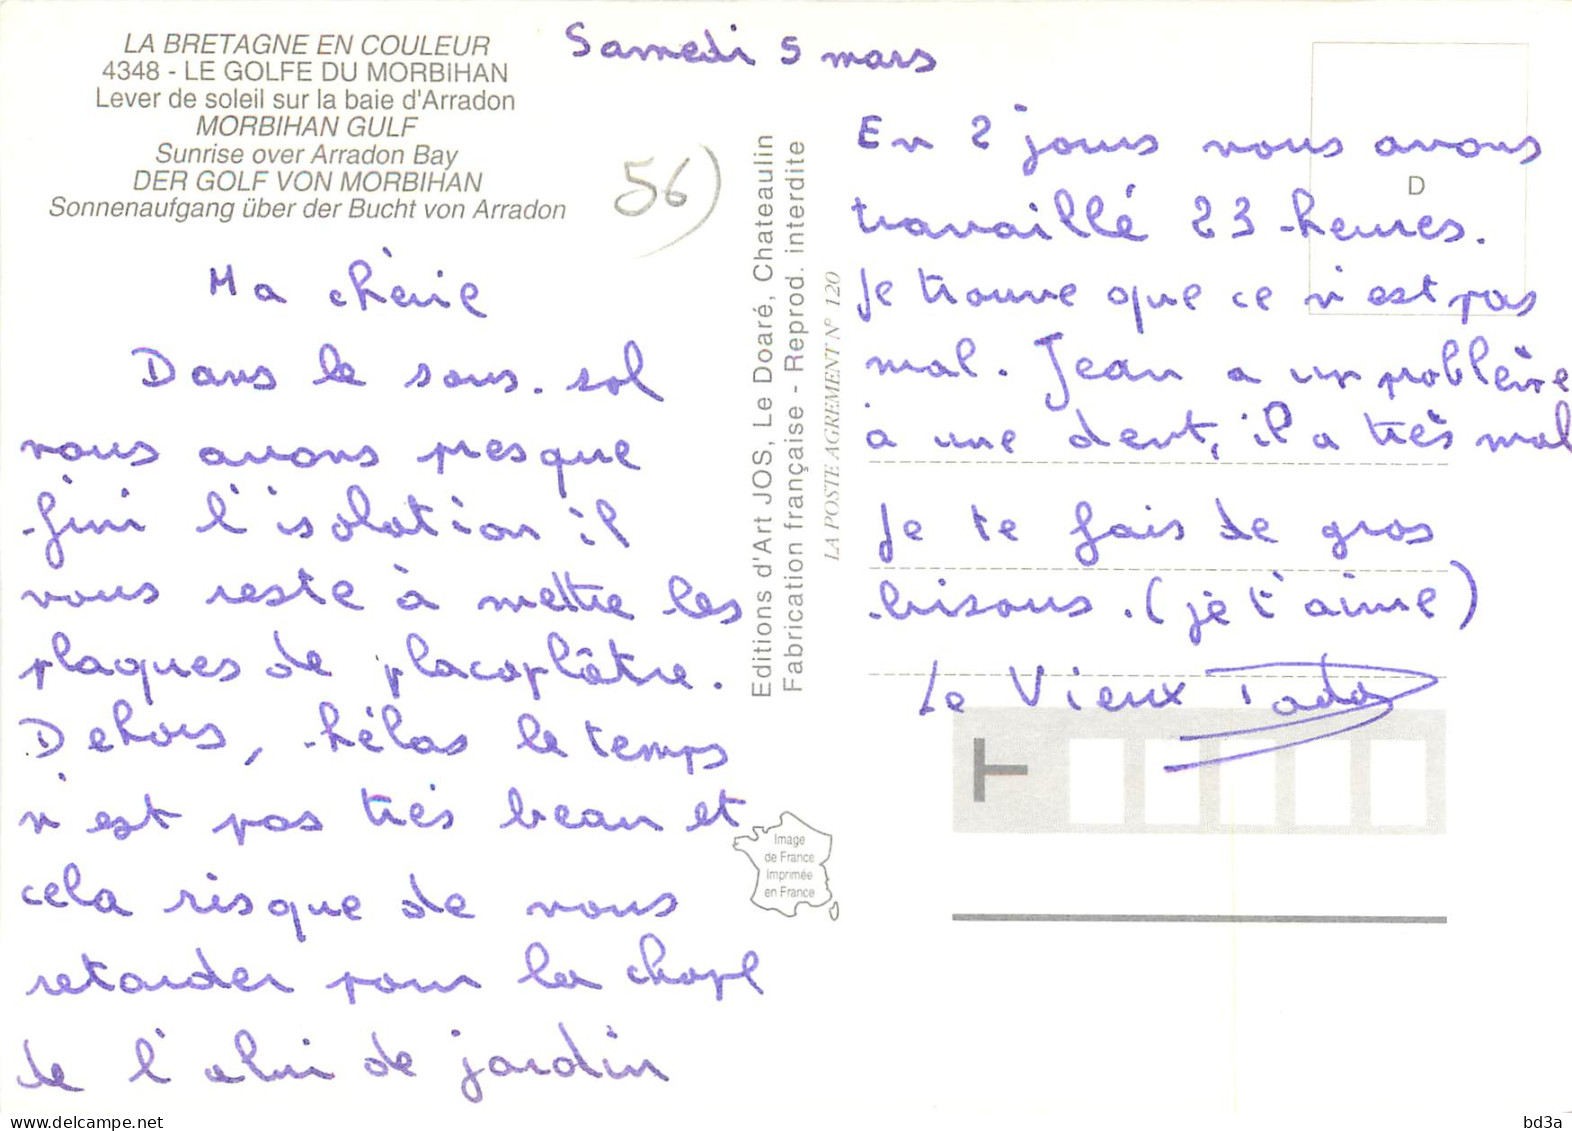 LA BRETAGNE EN COULEUR
4348 - LE GOLFE DU MORBIHAN
Lever de soleil sur la baie d'Arradon
MORBIHAN GULF
Sunrise over Arradon Bay
DER GOLF VON MORBIHAN
Sonnenaufgang über der Bucht von Arradon
56)
Samedi 5 mars
Ma chérie
Dans le sous-sol
nous avons presque
fini l'isolation il
nous reste à mettre les
plaques de placoplâtre.
Dehors, hélas le temps
n'est pas très beau et
cela risque de nous
retarder pour la chape
de l'abri de jardin
Editions d'Art JOS, Le Doaré, Chateaulin
Fabrication française - Reprod. interdite
LA POSTE AGREMENT N° 120
Image
de France
imprimée
en France
D
En 2 jours nous avons
travaillé 23 heures.
Je trouve que ce n'est pas
mal. Jean a un problème
à une dent, il a très mal
Je te fais de gros
bisous. (je t'aime)
Le Vieux
T
delcampe.net
bd3a